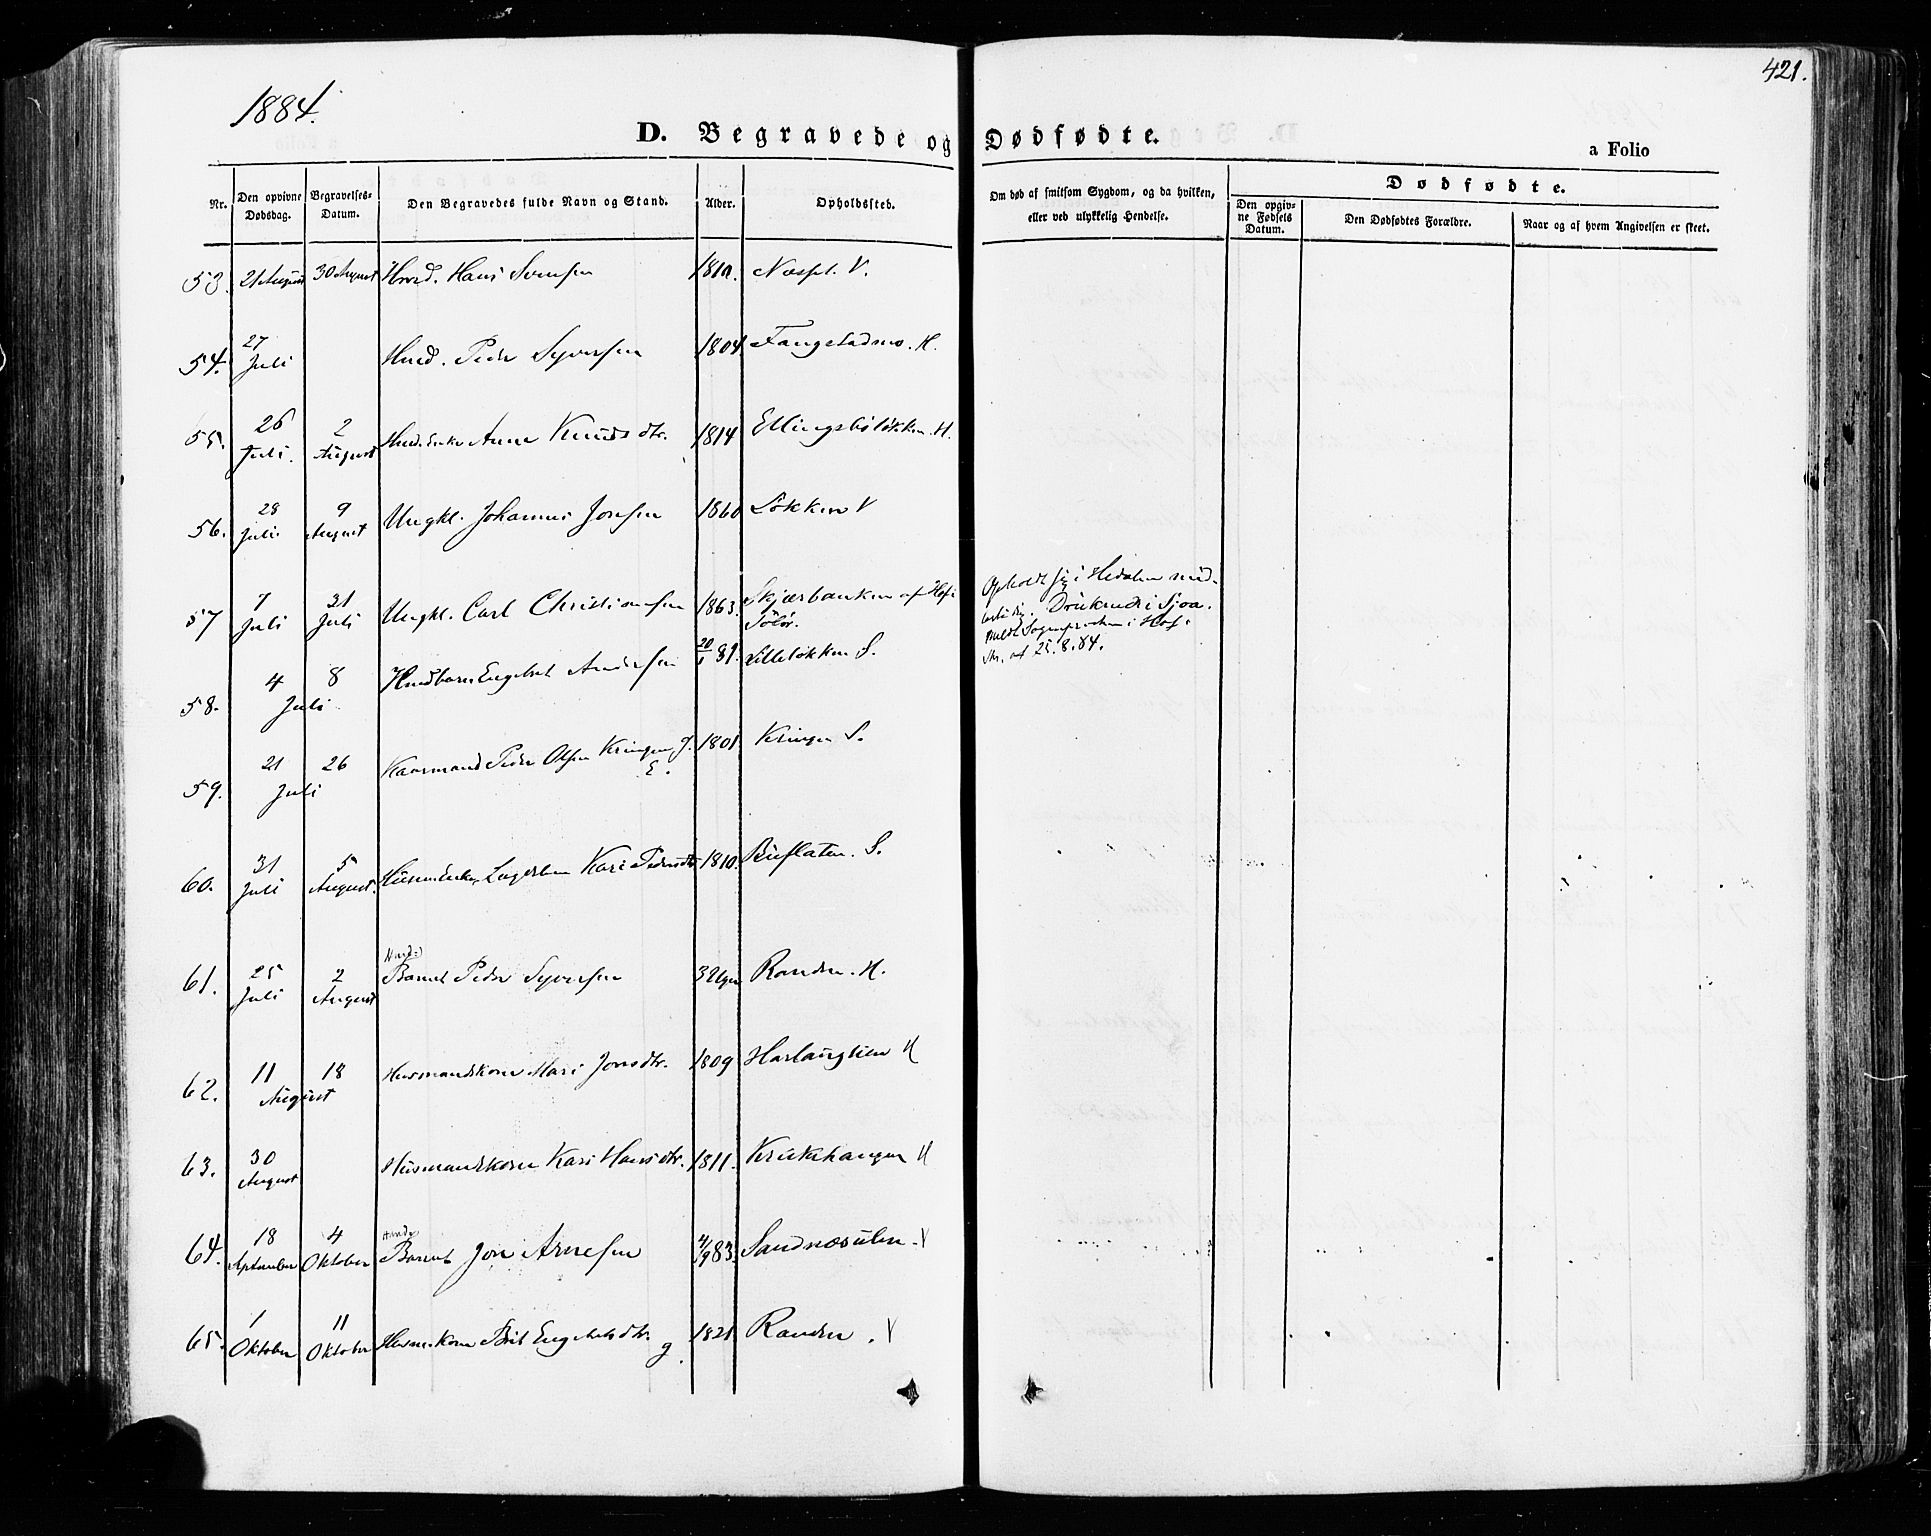 1884.
421.
D. Begravede og Dødfødte.
a Folio
Nr.
Den opgivne Dødsdag.
Begravelses-Datum.
Den Begravedes fulde Navn og Stand.
Alder.
Opholdssted.
Om død af smitsom Sygdom, og da hvilken,
eller ved ulykkelig Hendelse.
Dødfødte.
Den opgiv-
ne Fødsels
Datum.
Den Dødfødtes Forældre.
Naar og af hvem Angivelsen er skeet.
53. 21 August 30 August Hans Svensen 1810. V.
54. 27 Juli Peder Syversen 1804 H.
55. 26 Juli. 2 August Enke Anne Knudsdtr. 1814 H.
56. 28 Juli. 9 August Ungkl. Johannes Jonsen 1860 Løkken V
57 7 Juli 31 Juli Ungkl. Carl Christiansen 1863. Skjærbanken af Hof i
Solør.
Opholdt sig i Hedalen
Druknede i Sjoa.
i Hof
25.8.84.
58. 4 8 Juli Engebret Andersen 20/1 81. Lilleløkken S.
59. 21 26 Juli Kaarmand Peder Olsen Kringen 1801 Kringen S.
E.
60. 31 Juli 5 August. Kari Pedersdtr 1810. Ruflaten. S.
61. 25 Juli 2 August Barnet Peder Syversen 3 Uger Randen. H.
62. 11 18 August Husmandskone Mari Jonsdtr. 1809 Haslauglien H
63. 30 August Husmandskone Kari Hansdtr. 1811. Krukhaugen H
64. 18 September 4 Oktober Barnet Jon Arnesen 4/9 83. V
65. 1 Oktober 11 Oktober Brit Engebretsdtr. 1821 Randen. V
g